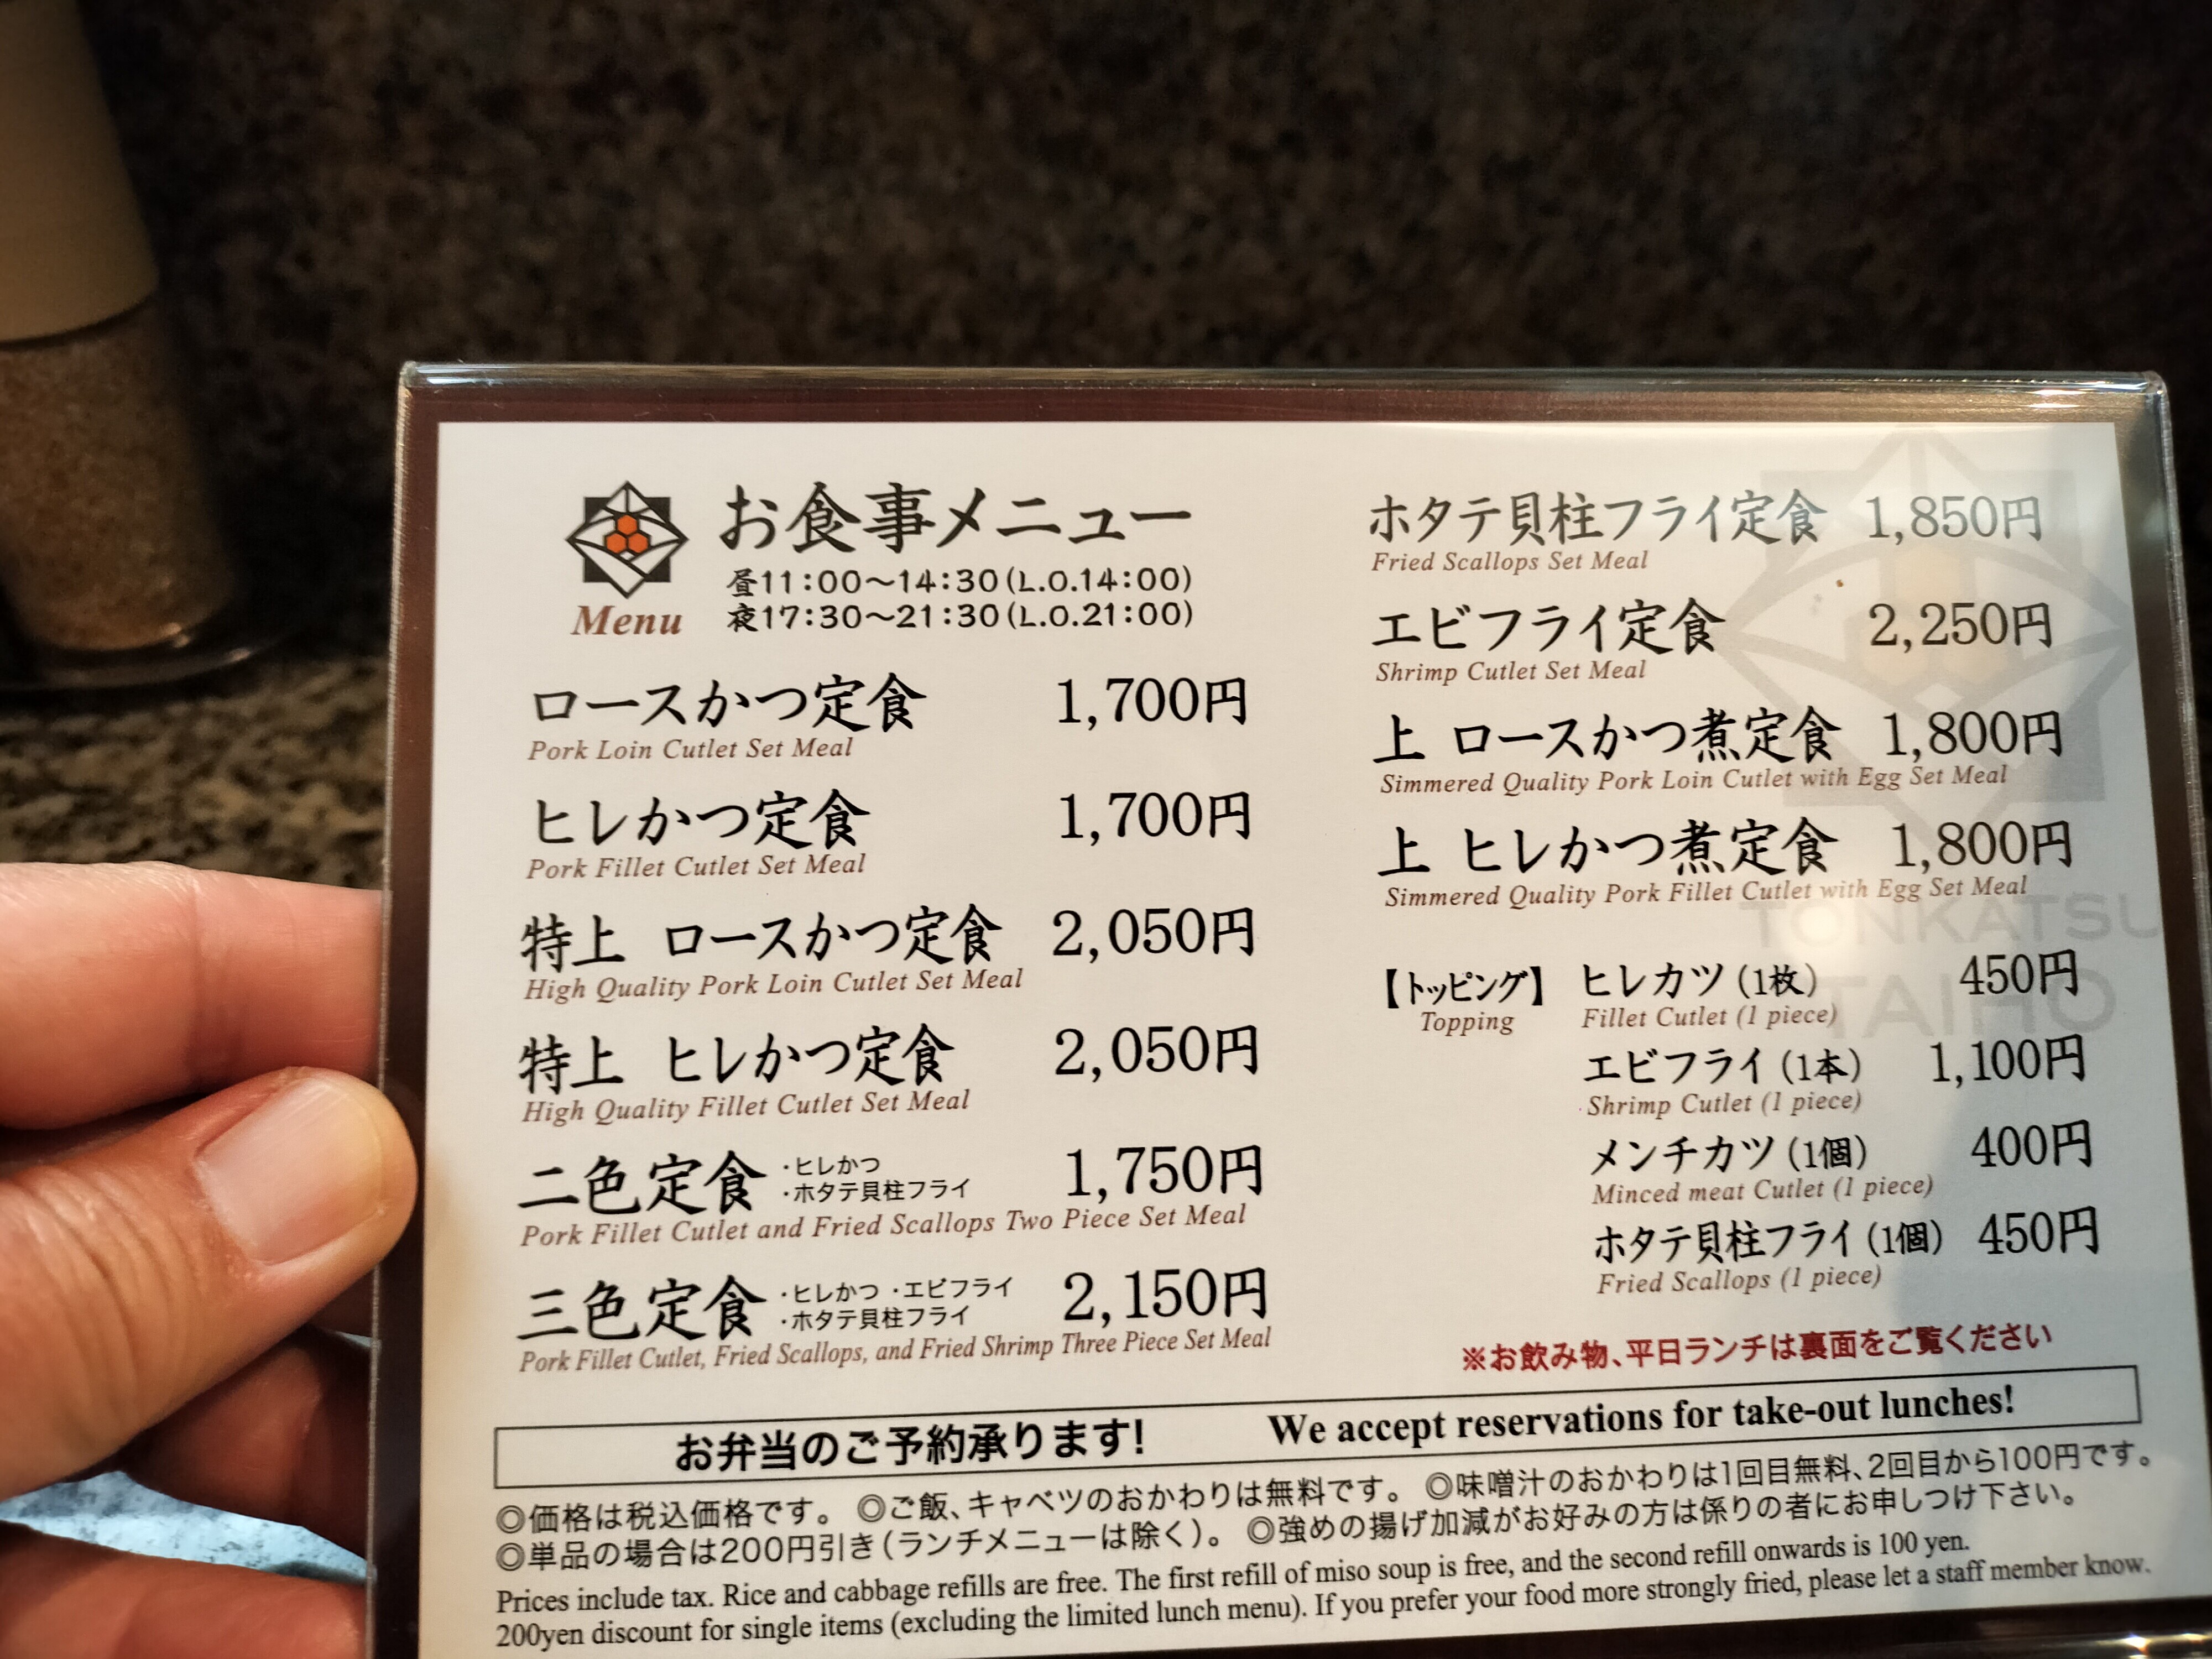 お食事メニュー
Menu
昼11:00〜14:30(L.O.14:00)
夜17:30〜21:30(L.O.21:00)
ロースかつ定食 1,700円
Pork Loin Cutlet Set Meal
ヒレかつ定食 1,700円
Pork Fillet Cutlet Set Meal
特上 ロースかつ定食 2,050円
High Quality Pork Loin Cutlet Set Meal
特上 ヒレかつ定食 2,050円
High Quality Fillet Cutlet Set Meal
二色定食 ・ヒレかつ 1,750円
・ホタテ貝柱フライ
Pork Fillet Cutlet and Fried Scallops Two Piece Set Meal
三色定食 ・ヒレかつ ・エビフライ 2,150円
・ホタテ貝柱フライ
Pork Fillet Cutlet, Fried Scallops, and Fried Shrimp Three Piece Set Meal
ホタテ貝柱フライ定食 1,850円
Fried Scallops Set Meal
エビフライ定食 2,250円
Shrimp Cutlet Set Meal
上 ロースかつ煮定食 1,800円
Simmered Quality Pork Loin Cutlet with Egg Set Meal
上 ヒレかつ煮定食 1,800円
Simmered Quality Pork Fillet Cutlet with Egg Set Meal
TONKATSU
TAIHO
【トッピング】 ヒレカツ(1枚) 450円
Topping Fillet Cutlet (1 piece)
エビフライ(1本) 1,100円
Shrimp Cutlet (1 piece)
メンチカツ(1個) 400円
Minced meat Cutlet (1 piece)
ホタテ貝柱フライ(1個) 450円
Fried Scallops (1 piece)
※お飲み物、平日ランチは裏面をご覧ください
お弁当のご予約承ります! We accept reservations for take-out lunches!
◎価格は税込価格です。 ◎ご飯、キャベツのおかわりは無料です。 ◎味噌汁のおかわりは1回目無料、2回目から100円です。
◎単品の場合は200円引き(ランチメニューは除く)。 ◎強めの揚げ加減がお好みの方は係りの者にお申しつけ下さい。
Prices include tax. Rice and cabbage refills are free. The first refill of miso soup is free, and the second refill onwards is 100 yen.
200yen discount for single items (excluding the limited lunch menu). If you prefer your food more strongly fried, please let a staff member know.